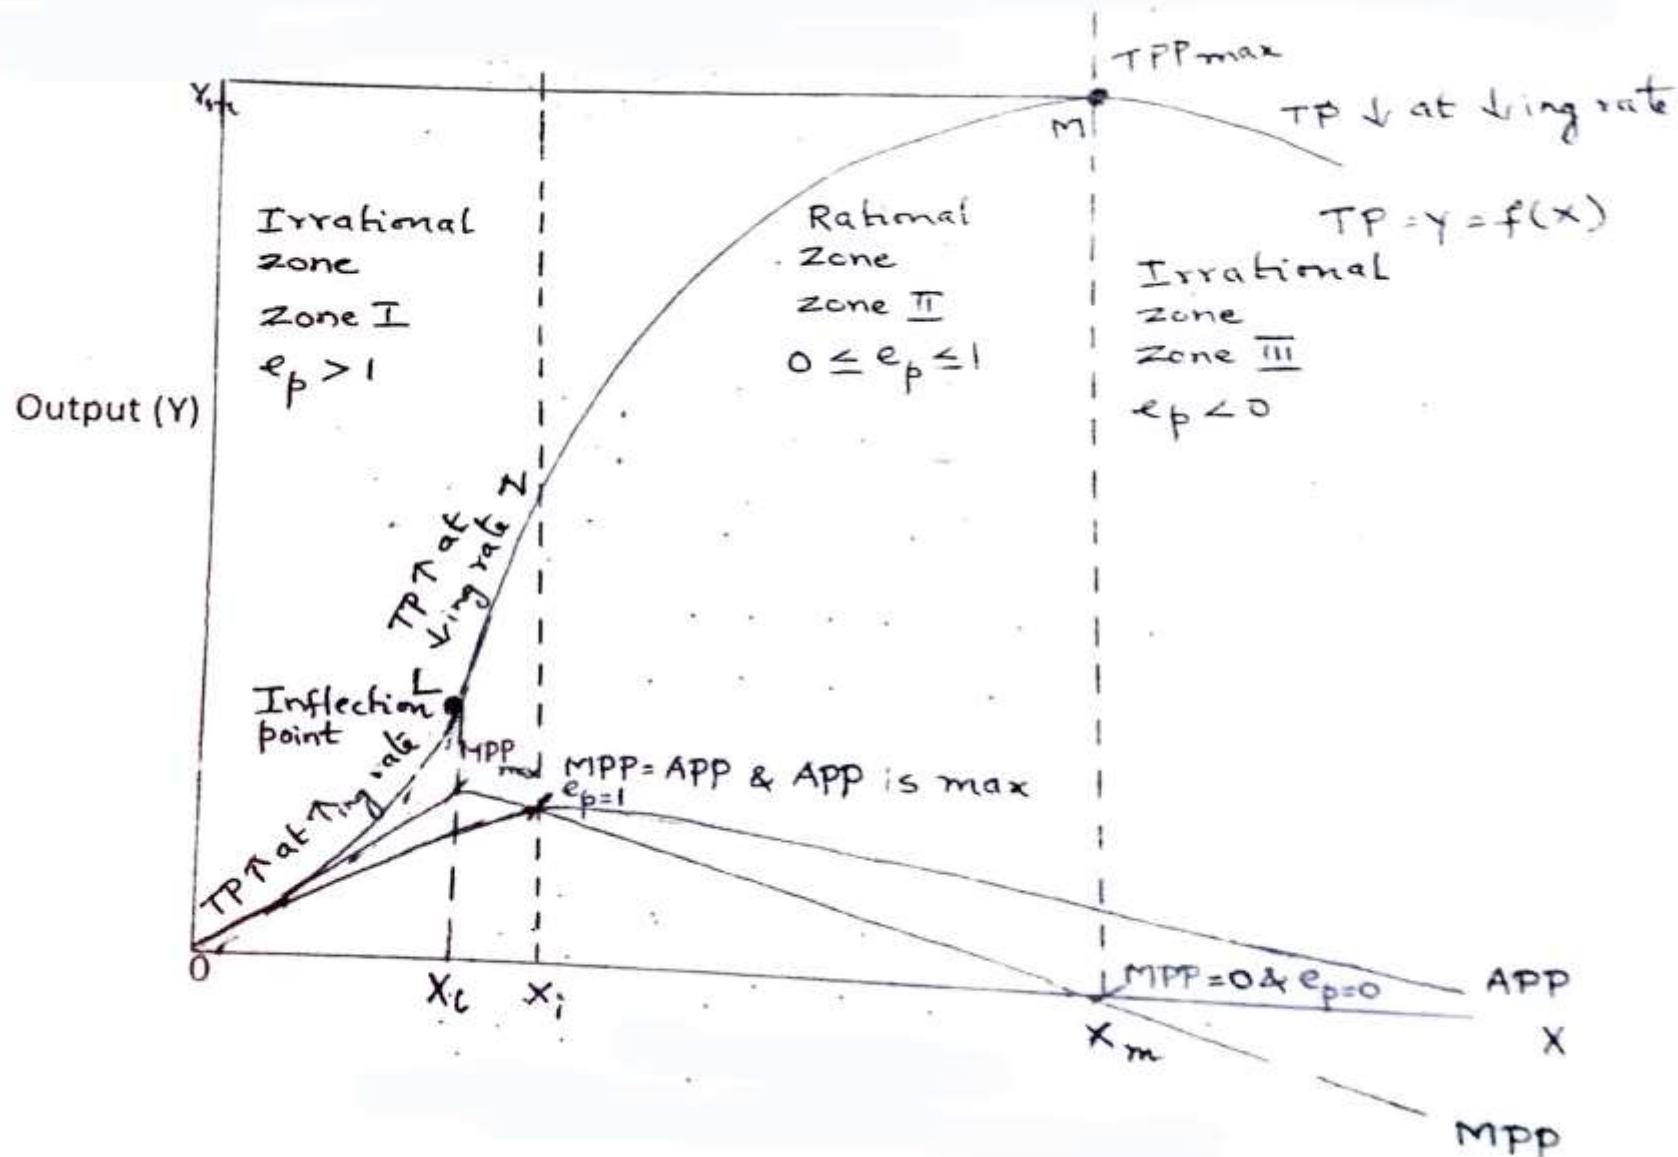 TPP max
Ym
M
TP ↓ at ↓ing rate
Irrational
zone
zone I
ep > 1
Rational
zone
zone II
0 ≤ ep ≤ 1
TP = Y = f(X)
Irrational
zone
zone III
ep < 0
Output (Y)
Z
TP ↑ at
↓ing rate
L
Inflection
point
TP ↑ at ↑ing rate
MPP max
MPP = APP & APP is max
ep=1
O
XL
Xi
MPP = 0 & ep=0
Xm
APP
X
MPP